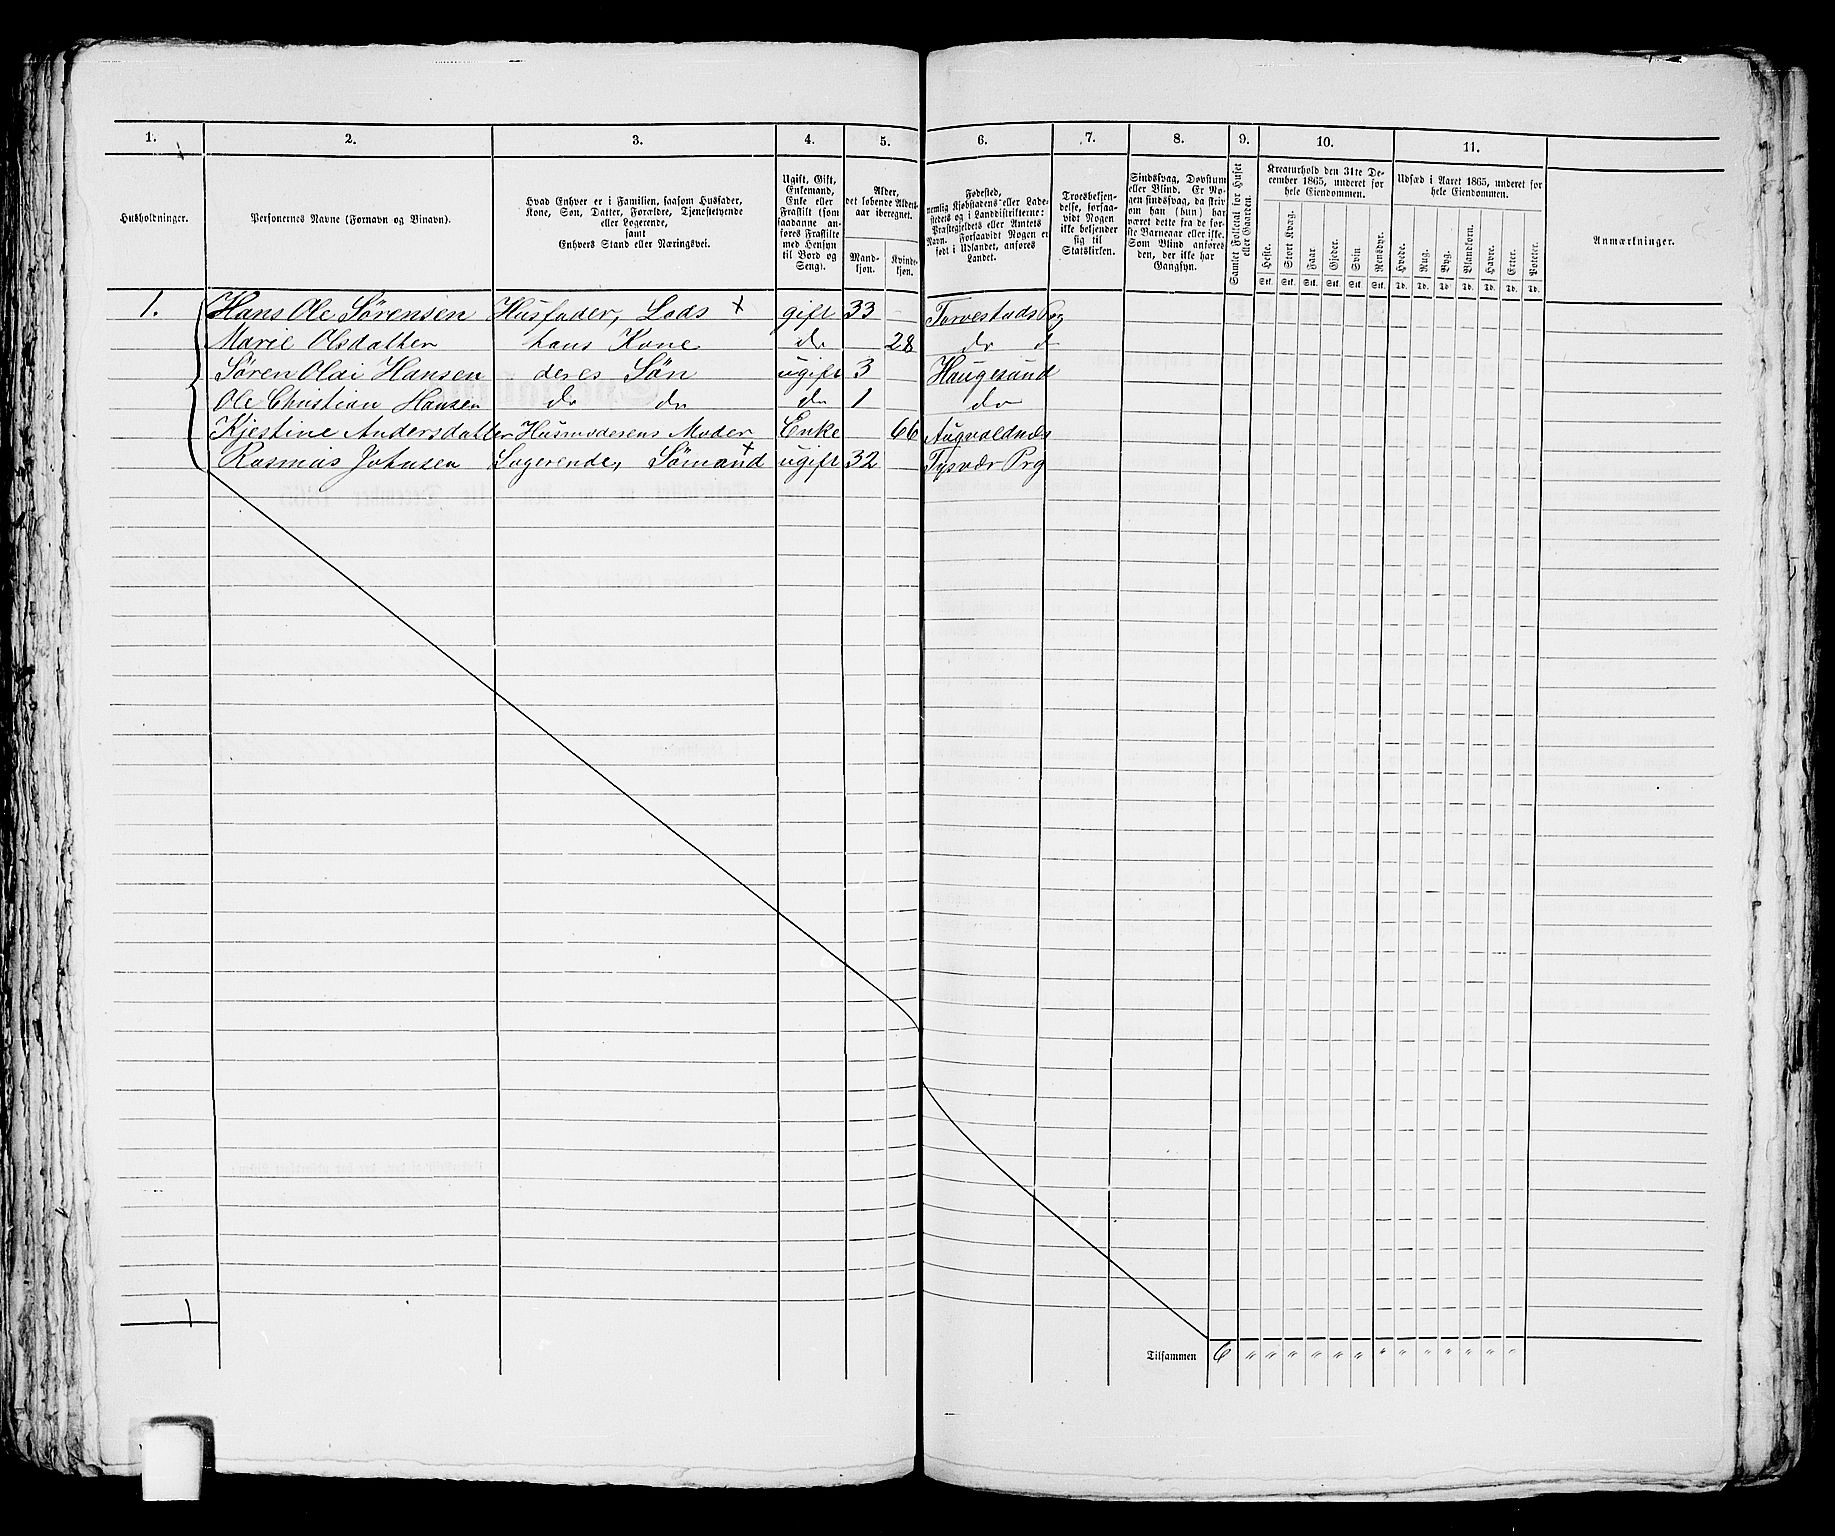 1. 2. 3. 4. 5. 6. 7. 8. 9. 10. 11.
Husholdninger.
Personernes Navne (Fornavn og Binavn).
Hvad Enhver er i Familien, saasom Husfader,
Kone, Søn, Datter, Forældre, Tjenestetyende
eller Logerende,
samt
Enhvers Stand eller Næringsvei.
Ugift, Gift,
Enkemand,
Enke eller
Fraskilt (som
saadanne an-
føres Fraskilte
med Hensyn
til Bord og
Seng).
Alder,
det løbende Alders-
aar iberegnet.
Mand-
kjøn.
Kvinde-
kjøn.
Fødested,
nemlig Kjøbstadens eller Lade-
stedets og i Landdistrikterne:
Præstegjeldets eller Amtets
Navn. Forsaavidt Nogen er
født i Udlandet, anføres
Landet.
Troesbekjen-
delse, forsaa-
vidt Nogen
ikke bekjender
sig til
Statskirken.
Sindssvag, Døvstum
eller Blind. Er No-
gen sindssvag, da skri-
ves
om han (hun) har
været dette fra de før-
ste Barneaar eller ikke.
Som Blind anføres
den, der ikke har
Gangsyn.
Samlet Folketal for Huset
eller Gaarden.
Kreaturhold den 31te De-
cember 1865, underet for
hele Eiendommen.
Heste. Stort Kvæg. Faar. Gjeder. Svin. Rensdyr.
Stk. Stk. Stk. Stk. Stk. Stk.
Udsæd i Aaret 1865, underet for
hele Eiendommen.
Hvede. Rug. Byg. Blandkorn. Havre. Erter. Poteter.
Td. Td. Td. Td. Td. Td. Td.
Anmærkninger.
1. Hans Ole Sørensen Husfader, Lods x gift 33 Torvestads Prg
Marie Olsdatter hans Kone do 28 do d
Søren Olai Hansen deres Søn ugift 3 Haugesund
Ole Christian Hansen do do do 1 do
Kjestine Andersdatter Husmoderens Moder Enke 66 Augvaldnæs
Rasmus Johnsen Logerende, Sømand x ugift 32 Tysvær Prg
1
Tilsammen 6 " " " " " " " " " " " " "